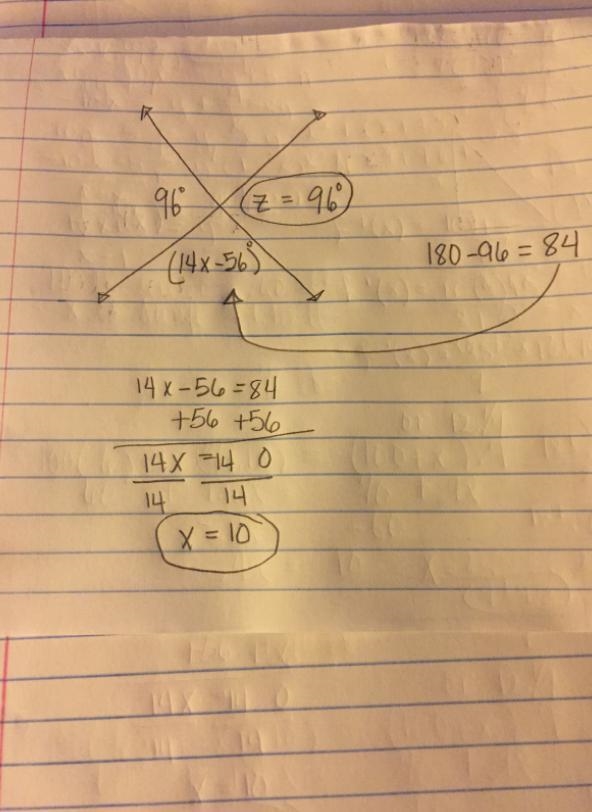 96° z = 96°
(14x-56°)
180-96 = 84
14x-56 =84
+56 +56
14x =14 0
14 14
x = 10